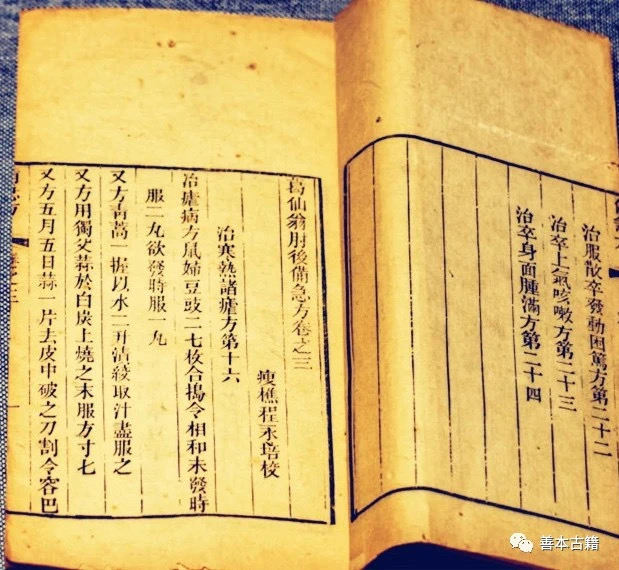 治服散卒發動困篤方第二十二
治卒上氣咳嗽方第二十三
治卒身面腫滿方第二十四
葛仙翁肘後備急方卷之三
瘦樵程永培校
治寒熱諸瘧方第十六
治瘧病方鼠婦豆豉二七枚合搗令相和未發時
服二丸欲發時服一丸
又方青蒿一握以水二升漬絞取汁盡服之
又方用獨父蒜於白炭上燒之末服方寸七
又方五月五日蒜一片去皮中破之刀割令容巴
善本古籍